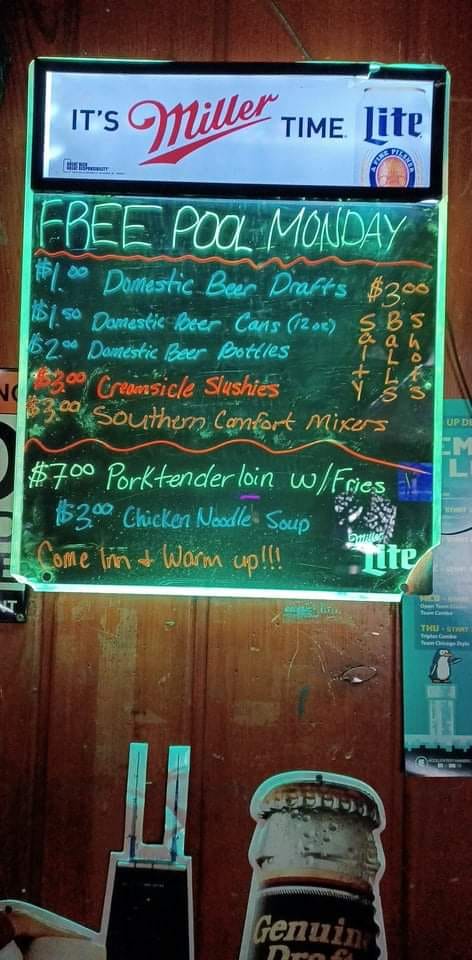 IT'S Miller TIME Lite
A FINE PILSNER
FREE POOL MONDAY
$1.00 Domestic Beer Drafts
$1.50 Domestic Beer Cans (12oz)
$2.00 Domestic Beer Bottles
$3.00 Creamsicle Slushies
$3.00 Southern Comfort Mixers
$3.00
Salty
Balls
Shots
$7.00 Porktenderloin w/Fries
$3.00 Chicken Noodle Soup
Come Inn + Warm up!!!
Miller
Lite
UP DE
EM
L
START
WED
THU - START
Triples Combo
Team Chicago Style
NT
Genuin
Draft